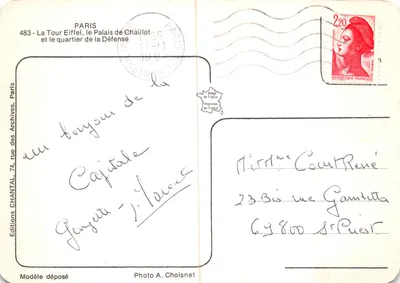 PARIS
483 - La Tour Eiffel, le Palais de Chaillot
et le quartier de la Défense
Editions CHANTAL, 74, rue des Archives, Paris
un bonjour de la
Capitale
Georgette
Modèle déposé
Photo A. Choisnet
2,20
M. Mme Court René
23 Bis rue Gambetta
69800 St Priest